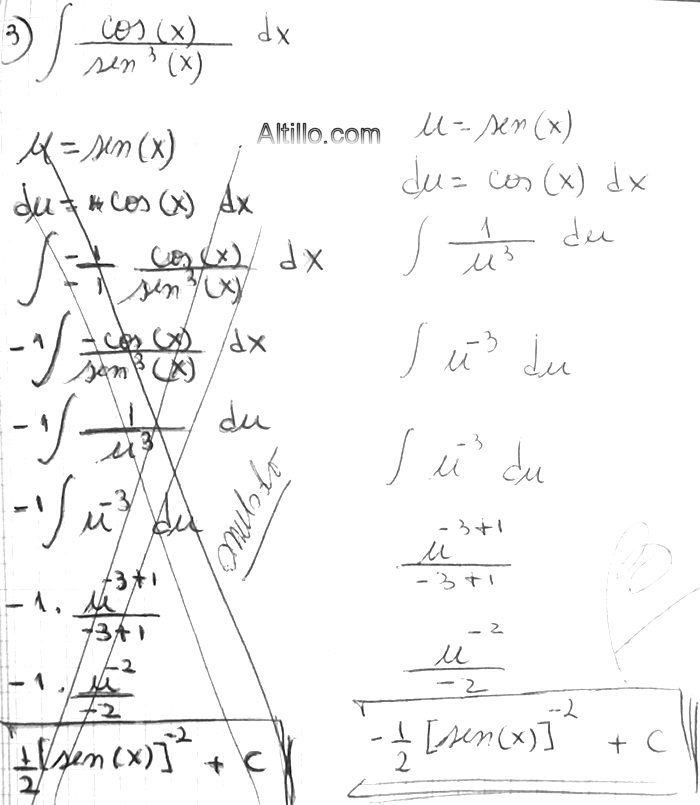 3) ∫ cos(x) / sen³(x) dx
Altillo.com
u = sen(x)
du = cos(x) dx
∫ -1/-1 cos(x)/sen³(x) dx
-1 ∫ -cos(x)/sen³(x) dx
-1 ∫ 1/u³ du
-1 ∫ u⁻³ du
-1 . u⁻³⁺¹/-3+1
-1 . u⁻²/-2
1/2 [sen(x)]⁻² + C
anulado
u = sen(x)
du = cos(x) dx
∫ 1/u³ du
∫ u⁻³ du
∫ u⁻³ du
u⁻³⁺¹/-3+1
u⁻²/-2
-1/2 [sen(x)]⁻² + C